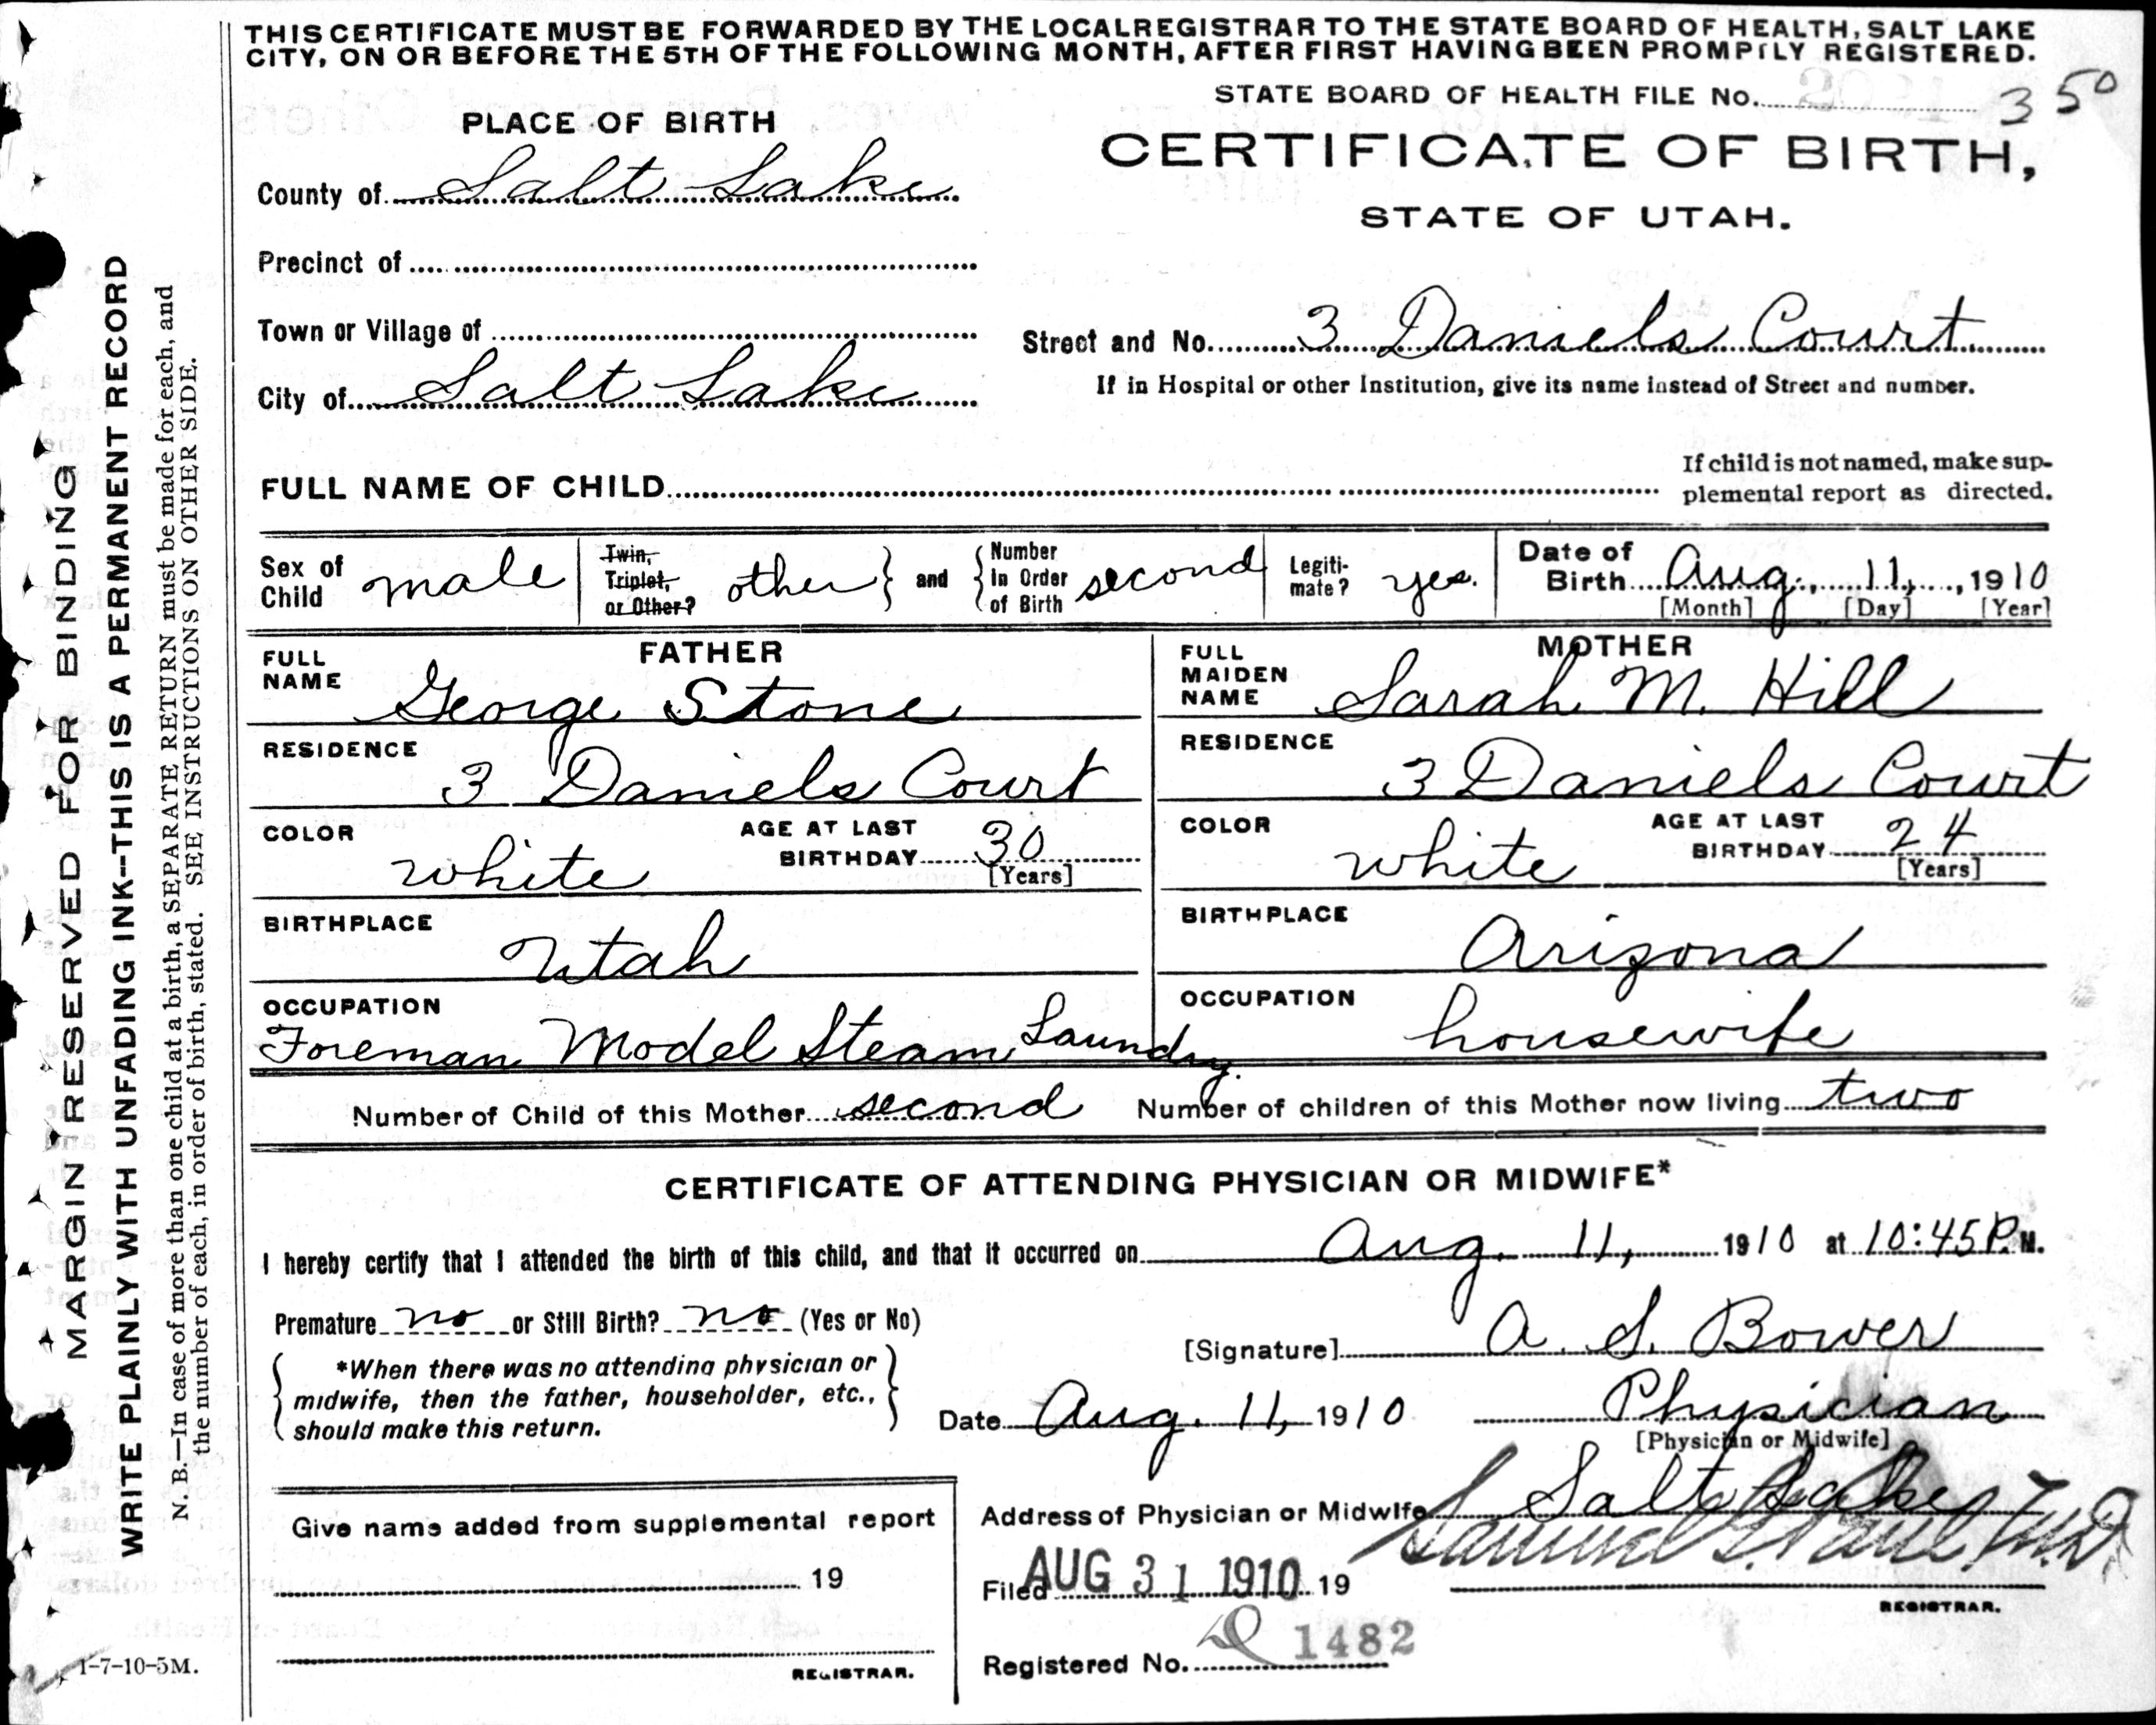 THIS CERTIFICATE MUST BE FORWARDED BY THE LOCAL REGISTRAR TO THE STATE BOARD OF HEALTH, SALT LAKE
CITY, ON OR BEFORE THE 5TH OF THE FOLLOWING MONTH, AFTER FIRST HAVING BEEN PROMPTLY REGISTERED.
STATE BOARD OF HEALTH FILE No. 350
PLACE OF BIRTH
CERTIFICATE OF BIRTH,
STATE OF UTAH.
County of Salt Lake
Precinct of
Town or Village of
Street and No. 3 Daniels Court
City of Salt Lake
If in Hospital or other Institution, give its name instead of Street and number.
FULL NAME OF CHILD
If child is not named, make sup-
plemental report as directed.
Sex of Child male
Twin, Triplet, or Other? other
and Number in Order of Birth second
Legiti-mate? yes.
Date of Birth Aug. 11, 1910
[Month] [Day] [Year]
FATHER
FULL NAME George Stone
RESIDENCE 3 Daniels Court
COLOR white AGE AT LAST BIRTHDAY 30 [Years]
BIRTHPLACE Utah
OCCUPATION Foreman Model Steam Laundry.
MOTHER
FULL MAIDEN NAME Sarah M. Hill
RESIDENCE 3 Daniels Court
COLOR white AGE AT LAST BIRTHDAY 24 [Years]
BIRTHPLACE Arizona
OCCUPATION housewife
Number of Child of this Mother second Number of children of this Mother now living two
CERTIFICATE OF ATTENDING PHYSICIAN OR MIDWIFE*
I hereby certify that I attended the birth of this child, and that it occurred on Aug. 11, 1910 at 10:45 P. M.
Premature no or Still Birth? no (Yes or No)
[Signature] A. S. Bower
*When there was no attending physician or
midwife, then the father, householder, etc.,
should make this return.
Date Aug. 11, 1910 Physician
[Physician or Midwife]
Give name added from supplemental report
19
REGISTRAR.
Address of Physician or Midwife Salt Lake
Samuel G. Paul, M.D.
Filed AUG 31 1910 19
REGISTRAR.
Registered No. 1482
MARGIN RESERVED FOR BINDING
WRITE PLAINLY WITH UNFADING INK--THIS IS A PERMANENT RECORD
N. B.—In case of more than one child at a birth, a SEPARATE RETURN must be made for each, and
the number of each, in order of birth, stated. SEE INSTRUCTIONS ON OTHER SIDE.
1-7-10-5M.